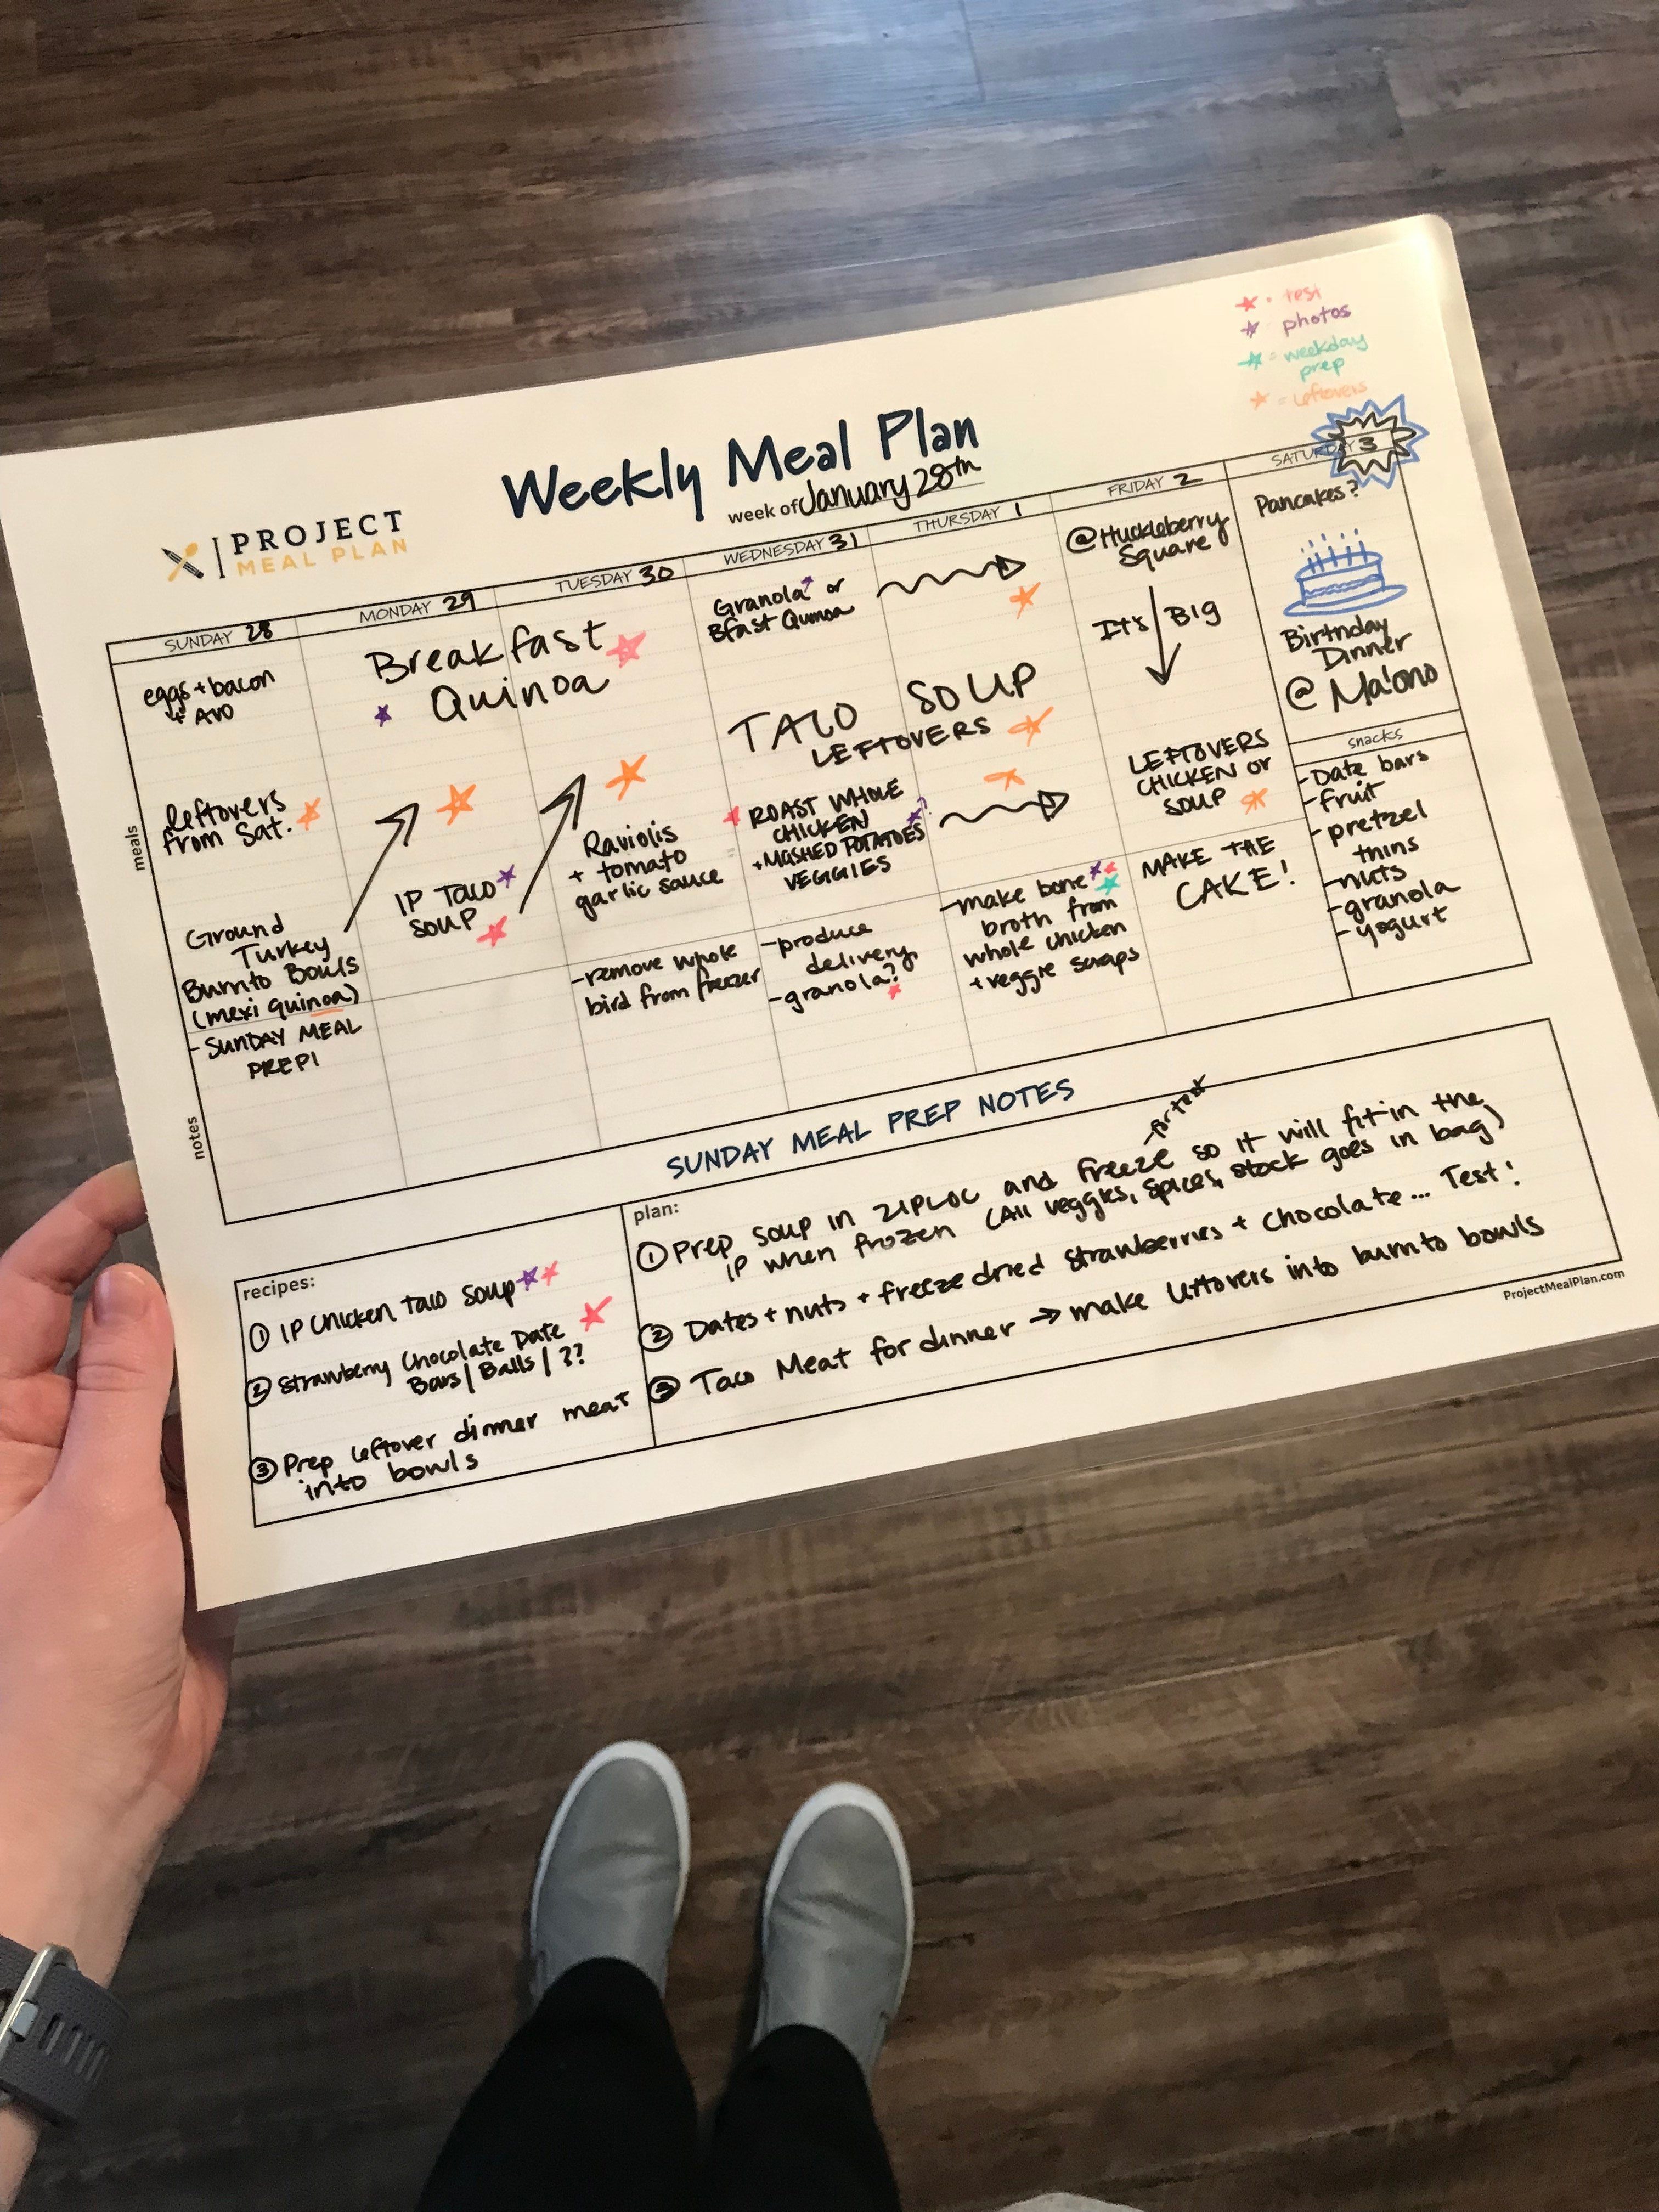 = test
photos
= weekday
prep
= leftovers
Weekly Meal Plan
week of January 28th
PROJECT
MEAL PLAN
SUNDAY 28
MONDAY 29
TUESDAY 30
WEDNESDAY 31
THURSDAY 1
FRIDAY 2
SATURDAY 3
meals
eggs + bacon
+ AVO
leftovers
from Sat.
Ground
Turkey
Burrito Bowls
(mexi quinoa)
Breakfast
Quinoa
IP TACO
SOUP
Raviolis
+ tomato
garlic sauce
Granola or
Bfast Quinoa
TACO SOUP
LEFTOVERS
ROAST WHOLE
CHICKEN
+ MASHED POTATOES
VEGGIES
@Huckleberry
Square
It's Big
LEFTOVERS
CHICKEN OR
SOUP
Pancakes?
Birthday
Dinner
@ Ma'ono
snacks
- Date bars
- fruit
- pretzel
thins
- nuts
- granola
- yogurt
notes
- SUNDAY MEAL
PREP!
- remove whole
bird from freezer
- produce
delivery
- granola?
- make bone
broth from
whole chicken
+ veggie scraps
MAKE THE
CAKE!
SUNDAY MEAL PREP NOTES
recipes:
① IP Chicken Taco Soup
② Strawberry Chocolate Date
Bars / Balls / ??
③ Prep leftover dinner meat
into bowls
plan:
① Prep soup in ZIPLOC and freeze so it will fit in the
IP when frozen (All veggies, spices, stock goes in bag)
② Dates + nuts + freeze dried strawberries + chocolate... Test!
③ Taco Meat for dinner → make leftovers into burrito bowls
ProjectMealPlan.com